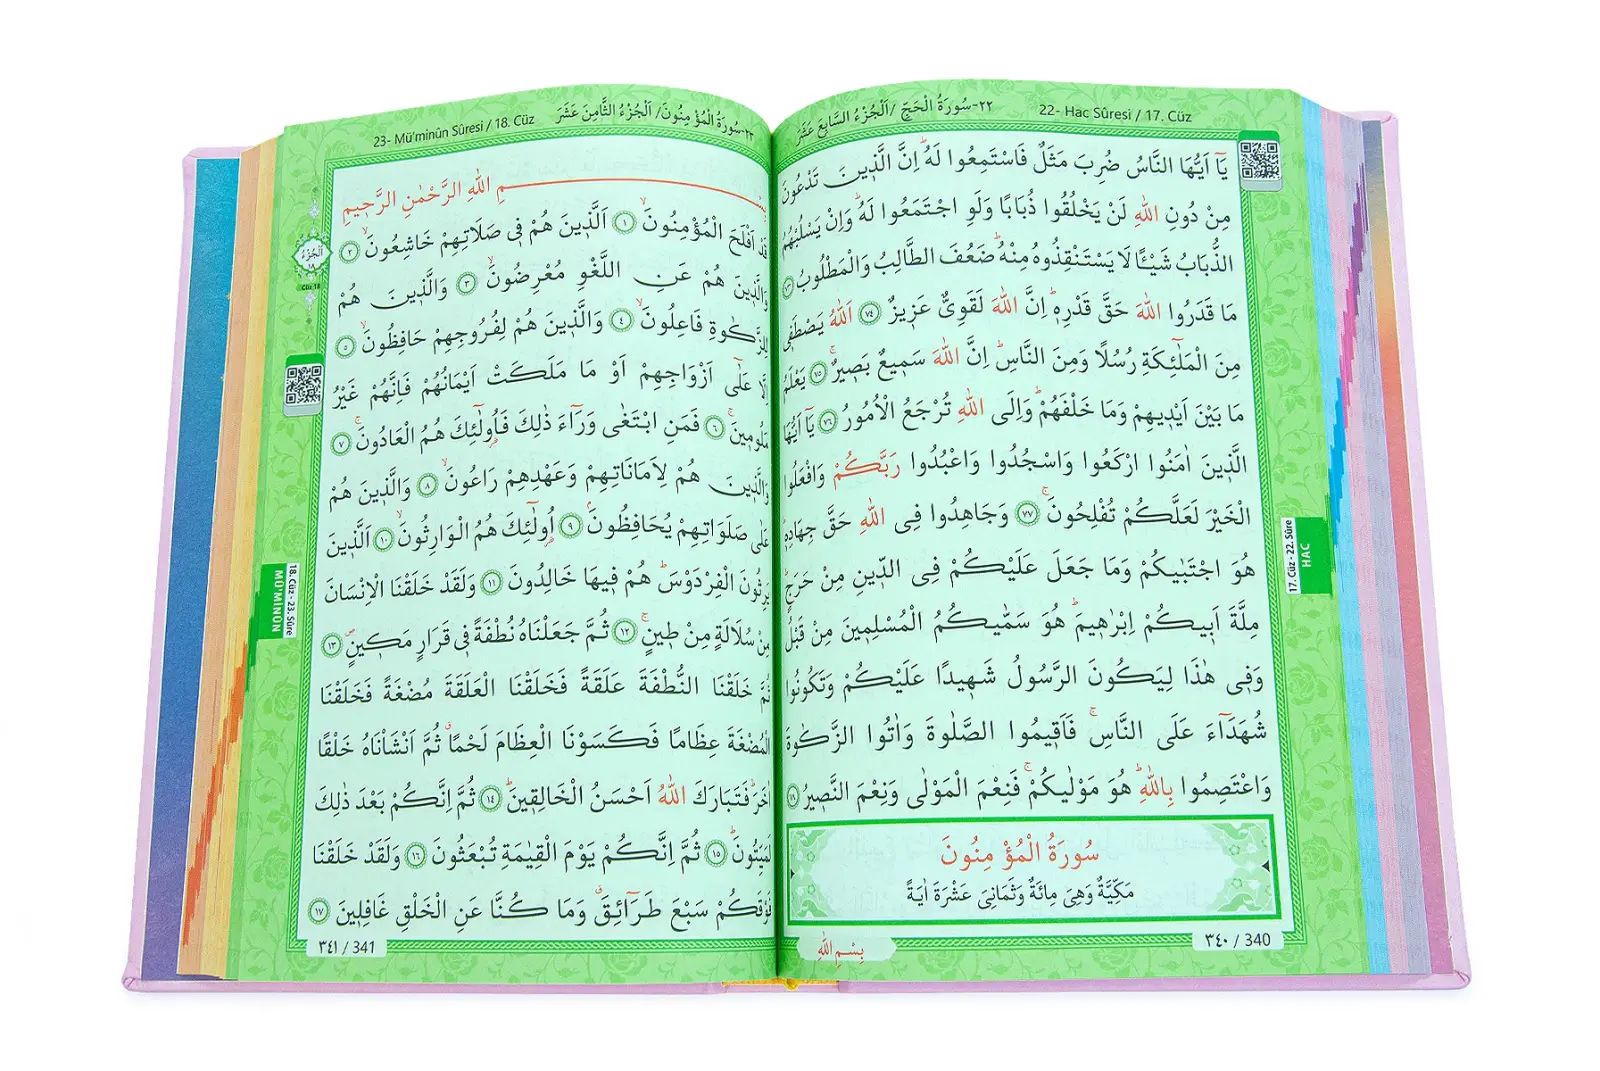 ٢٢-سُورَةُ الْحَجِّ /اَلْجُزْءُ السَّابِعَ عَشَرَ 22- Hac Sûresi / 17. Cüz
يَٓا اَيُّهَا النَّاسُ ضُرِبَ مَثَلٌ فَاسْتَمِعُوا لَهُۜ اِنَّ الَّذ۪ينَ تَدْعُونَ
مِنْ دُونِ اللّٰهِ لَنْ يَخْلُقُوا ذُبَابًا وَلَوِ اجْتَمَعُوا لَهُۜ وَاِنْ يَسْلُبْهُمُ
الذُّبَابُ شَيْـًٔا لَا يَسْتَنْقِذُوهُ مِنْهُۜ ضَعُفَ الطَّالِبُ وَالْمَطْلُوبُ ﴿٧٣﴾
مَا قَدَرُوا اللّٰهَ حَقَّ قَدْرِه۪ۜ اِنَّ اللّٰهَ لَقَوِيٌّ عَز۪يزٌ ﴿٧٤﴾ اَللّٰهُ يَصْطَف۪ي
مِنَ الْمَلٰٓئِكَةِ رُسُلًا وَمِنَ النَّاسِۜ اِنَّ اللّٰهَ سَم۪يعٌ بَص۪يرٌۚ ﴿٧٥﴾ يَعْلَمُ
مَا بَيْنَ اَيْد۪يهِمْ وَمَا خَلْفَهُمْۜ وَاِلَى اللّٰهِ تُرْجَعُ الْاُمُورُ ﴿٧٦﴾ يَٓا اَيُّهَا
الَّذ۪ينَ اٰمَنُوا ارْكَعُوا وَاسْجُدُوا وَاعْبُدُوا رَبَّكُمْ وَافْعَلُوا
الْخَيْرَ لَعَلَّكُمْ تُفْلِحُونَۚ ﴿٧٧﴾ وَجَاهِدُوا فِي اللّٰهِ حَقَّ جِهَادِه۪ۜ
هُوَ اجْتَبٰيكُمْ وَمَا جَعَلَ عَلَيْكُمْ فِي الدّ۪ينِ مِنْ حَرَجٍۜ
مِلَّةَ اَب۪يكُمْ اِبْرٰه۪يمَۜ هُوَ سَمّٰيكُمُ الْمُسْلِم۪ينَ مِنْ قَبْلُ
وَف۪ي هٰذَا لِيَكُونَ الرَّسُولُ شَه۪يدًا عَلَيْكُمْ وَتَكُونُوا
شُهَدَٓاءَ عَلَى النَّاسِۚ فَاَق۪يمُوا الصَّلٰوةَ وَاٰتُوا الزَّكٰوةَ
وَاعْتَصِمُوا بِاللّٰهِۜ هُوَ مَوْلٰيكُمْۚ فَنِعْمَ الْمَوْلٰى وَنِعْمَ النَّص۪يرُ
سُورَةُ الْمُؤْمِنُونَ
مَكِّيَّةٌ وَهِيَ مِائَةٌ وَثَمَانِيَ عَشْرَةَ اٰيَةً
بِسْمِ اللّٰهِ
٣٤٠ / 340
17. Cüz - 22. Sûre
HAC
٢٣-سُورَةُ الْمُؤْمِنُونَ/ اَلْجُزْءُ الثَّامِنَ عَشَرَ 23- Mü'minûn Sûresi / 18. Cüz
بِسْمِ اللّٰهِ الرَّحْمٰنِ الرَّح۪يمِ
قَدْ اَفْلَحَ الْمُؤْمِنُونَۙ ﴿١﴾ اَلَّذ۪ينَ هُمْ ف۪ي صَلَاتِهِمْ خَاشِعُونَۙ ﴿٢﴾
وَالَّذ۪ينَ هُمْ عَنِ اللَّغْوِ مُعْرِضُونَۙ ﴿٣﴾ وَالَّذ۪ينَ هُمْ
لِلزَّكٰوةِ فَاعِلُونَۙ ﴿٤﴾ وَالَّذ۪ينَ هُمْ لِفُرُوجِهِمْ حَافِظُونَۙ ﴿٥﴾
اِلَّا عَلٰٓى اَزْوَاجِهِمْ اَوْ مَا مَلَكَتْ اَيْمَانُهُمْ فَاِنَّهُمْ غَيْرُ
مَلُوم۪ينَۚ ﴿٦﴾ فَمَنِ ابْتَغٰى وَرَٓاءَ ذٰلِكَ فَاُو۬لٰٓئِكَ هُمُ الْعَادُونَۚ ﴿٧﴾
وَالَّذ۪ينَ هُمْ لِاَمَانَاتِهِمْ وَعَهْدِهِمْ رَاعُونَۙ ﴿٨﴾ وَالَّذ۪ينَ هُمْ
عَلٰى صَلَوَاتِهِمْ يُحَافِظُونَۢ ﴿٩﴾ اُو۬لٰٓئِكَ هُمُ الْوَارِثُونَۙ ﴿١٠﴾ اَلَّذ۪ينَ
يَرِثُونَ الْفِرْدَوْسَۜ هُمْ ف۪يهَا خَالِدُونَ ﴿١١﴾ وَلَقَدْ خَلَقْنَا الْاِنْسَانَ
مِنْ سُلَالَةٍ مِنْ ط۪ينٍۚ ﴿١٢﴾ ثُمَّ جَعَلْنَاهُ نُطْفَةً ف۪ي قَرَارٍ مَك۪ينٍۖ ﴿١٣﴾
ثُمَّ خَلَقْنَا النُّطْفَةَ عَلَقَةً فَخَلَقْنَا الْعَلَقَةَ مُضْغَةً فَخَلَقْنَا
الْمُضْغَةَ عِظَامًا فَكَسَوْنَا الْعِظَامَ لَحْمًاۗ ثُمَّ اَنْشَأْنَاهُ خَلْقًا
اٰخَرَۜ فَتَبَارَكَ اللّٰهُ اَحْسَنُ الْخَالِق۪ينَۜ ﴿١٤﴾ ثُمَّ اِنَّكُمْ بَعْدَ ذٰلِكَ
لَمَيِّتُونَۜ ﴿١٥﴾ ثُمَّ اِنَّكُمْ يَوْمَ الْقِيٰمَةِ تُبْعَثُونَ ﴿١٦﴾ وَلَقَدْ خَلَقْنَا
فَوْقَكُمْ سَبْعَ طَرَٓائِقَۗ وَمَا كُنَّا عَنِ الْخَلْقِ غَافِل۪ينَ ﴿١٧﴾
٣٤١ / 341
اَلْجُزْءُ
١٨
Cüz 18
18. Cüz - 23. Sûre
MÜ'MİNÛN